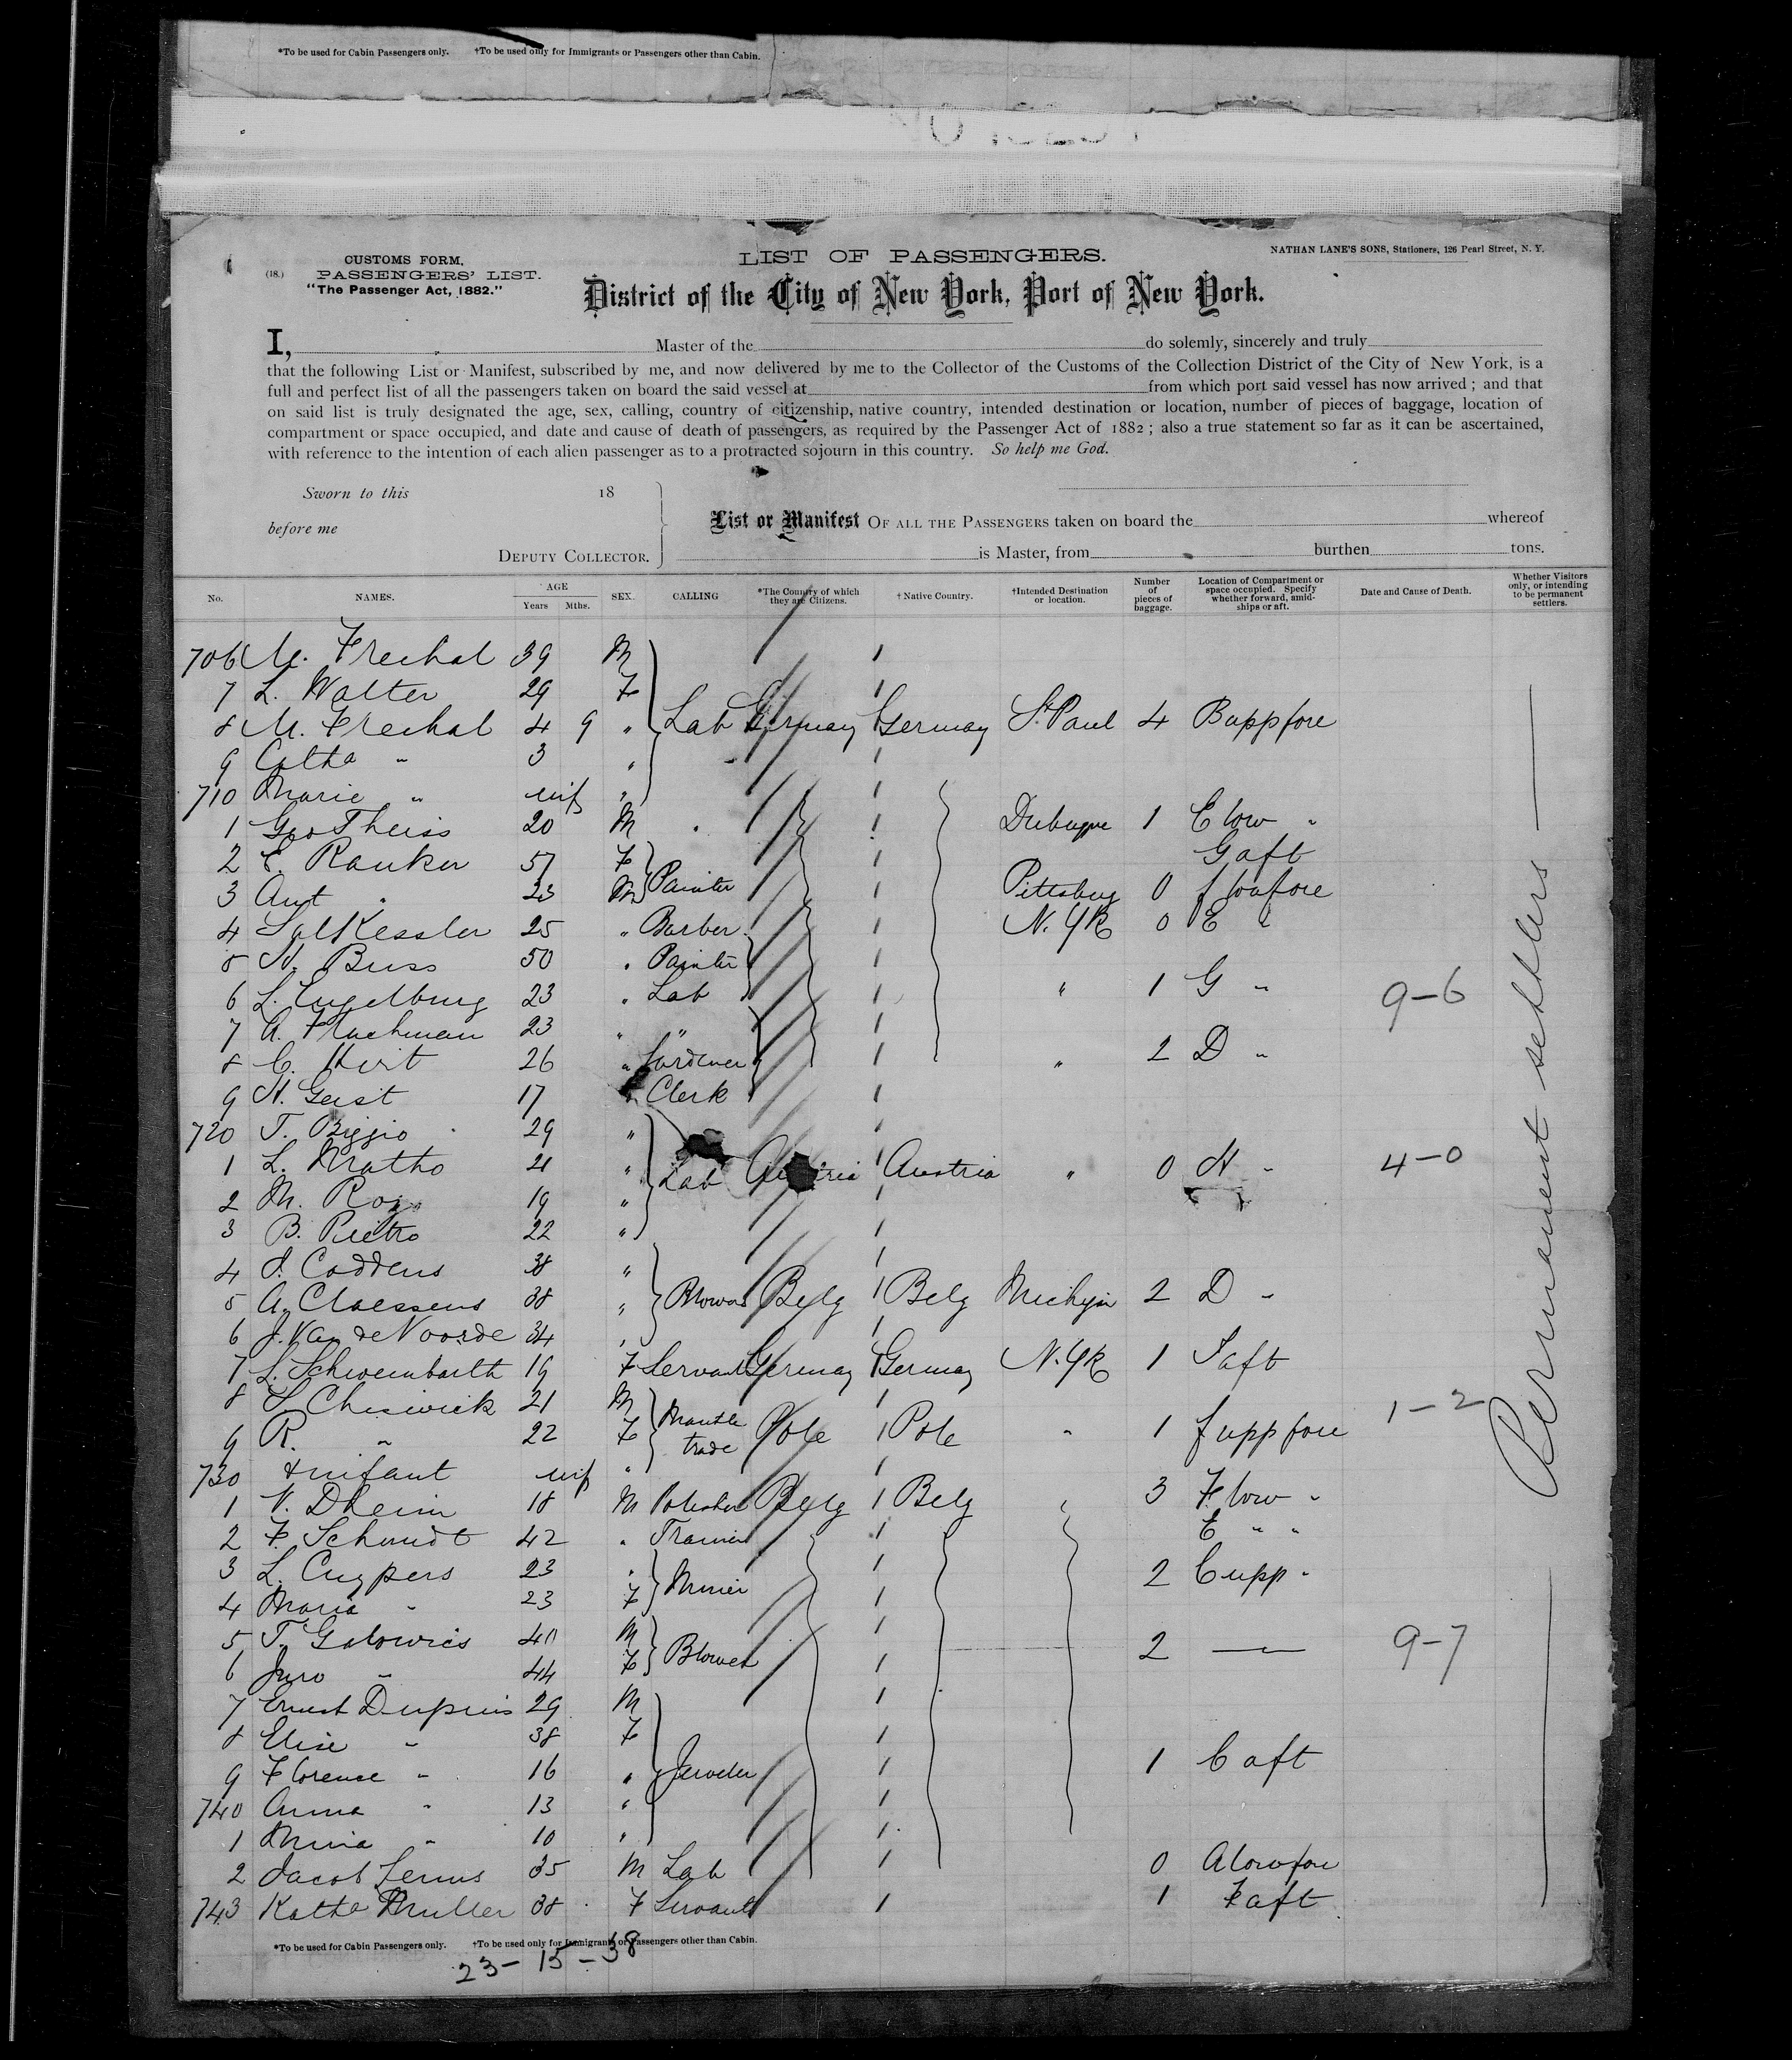 *To be used for Cabin Passengers only. †To be used only for Immigrants or Passengers other than Cabin.
CUSTOMS FORM,
(18.) PASSENGERS' LIST.
"The Passenger Act, 1882."
LIST OF PASSENGERS.
NATHAN LANE'S SONS, Stationers, 126 Pearl Street, N. Y.
District of the City of New York, Port of New York.
I, Master of the do solemly, sincerely and truly
that the following List or Manifest, subscribed by me, and now delivered by me to the Collector of the Customs of the Collection District of the City of New York, is a
full and perfect list of all the passengers taken on board the said vessel at from which port said vessel has now arrived ; and that
on said list is truly designated the age, sex, calling, country of citizenship, native country, intended destination or location, number of pieces of baggage, location of
compartment or space occupied, and date and cause of death of passengers, as required by the Passenger Act of 1882 ; also a true statement so far as it can be ascertained,
with reference to the intention of each alien passenger as to a protracted sojourn in this country. So help me God.
Sworn to this 18
before me
DEPUTY COLLECTOR.
List or Manifest OF ALL THE PASSENGERS taken on board the whereof
is Master, from burthen tons.
No. NAMES. AGE Years Mths. SEX. CALLING *The Country of which they are Citizens. †Native Country. †Intended Destination or location. Number of pieces of baggage. Location of Compartment or space occupied. Specify whether forward, amidships or aft. Date and Cause of Death. Whether Visitors only, or intending to be permanent settlers.
706 M. Frechal 39 M
7 L. Walter 29 F
8 M. Frechal 4 9 " Lab Germany Germany St Paul 4 B upp fore
9 Catha " 3 "
710 Marie " inf "
1 Geo Theiss 20 M " Dubuque 1 E low "
2 C. Ranker 57 F G aft
3 Ant " 23 M Painter Pittsburg 0 f low fore
4 Sal Kessler 25 " Barber N. Yk 0 E "
5 N. Buss 50 " Painter
6 L. Engelburg 23 " Lab " 1 G " 9-6
7 A. 23 " "
8 C. Hirt 26 " Gardener " 2 D "
9 H. Geist 17 " Clerk
720 T. Biggio 29 "
1 L. Matho 21 " Lab Austria Austria " 0 H " 4-0
2 M. 19 "
3 B. Pietro 22 "
4 J. Coddens 38 "
5 A. Claessens 38 " Belg Belg 2 D "
6 J. Van de Voorde 34 "
7 L. Schweinbarth 19 F Servant Germany Germany N. Yk 1 J aft
8 S Cheswick 21 M
9 R. " 22 F Mantle trade Pole Pole " 1 f upp fore 1-2
730 & infant inf "
1 V. Dheim 18 M Polisher Belg Belg " 3 F low "
2 F. Schmidt 42 " E " "
3 L. Cuypers 23 " Miner 2 C upp "
4 Maria " 23 F
5 T. Galowics 40 M Blower 2 — 9-7
6 Juro " 44 F
7 Ernest Dupuis 29 M
8 Elise " 38 F
9 Florence " 16 " Jeweler 1 C aft
740 Anna " 13 "
1 Mina " 10 "
2 Jacob Lenus 35 M Lab 0 A low fore
743 Kathe Muller 38 F Servant 1 F aft
Permanent settlers
*To be used for Cabin Passengers only. †To be used only for Immigrants or Passengers other than Cabin.
23-15-38